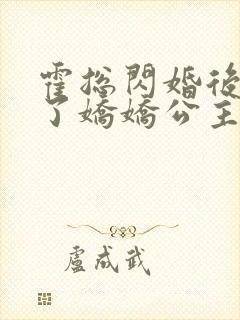 霍总閃婚後
了嬌嬌公主
盧成武